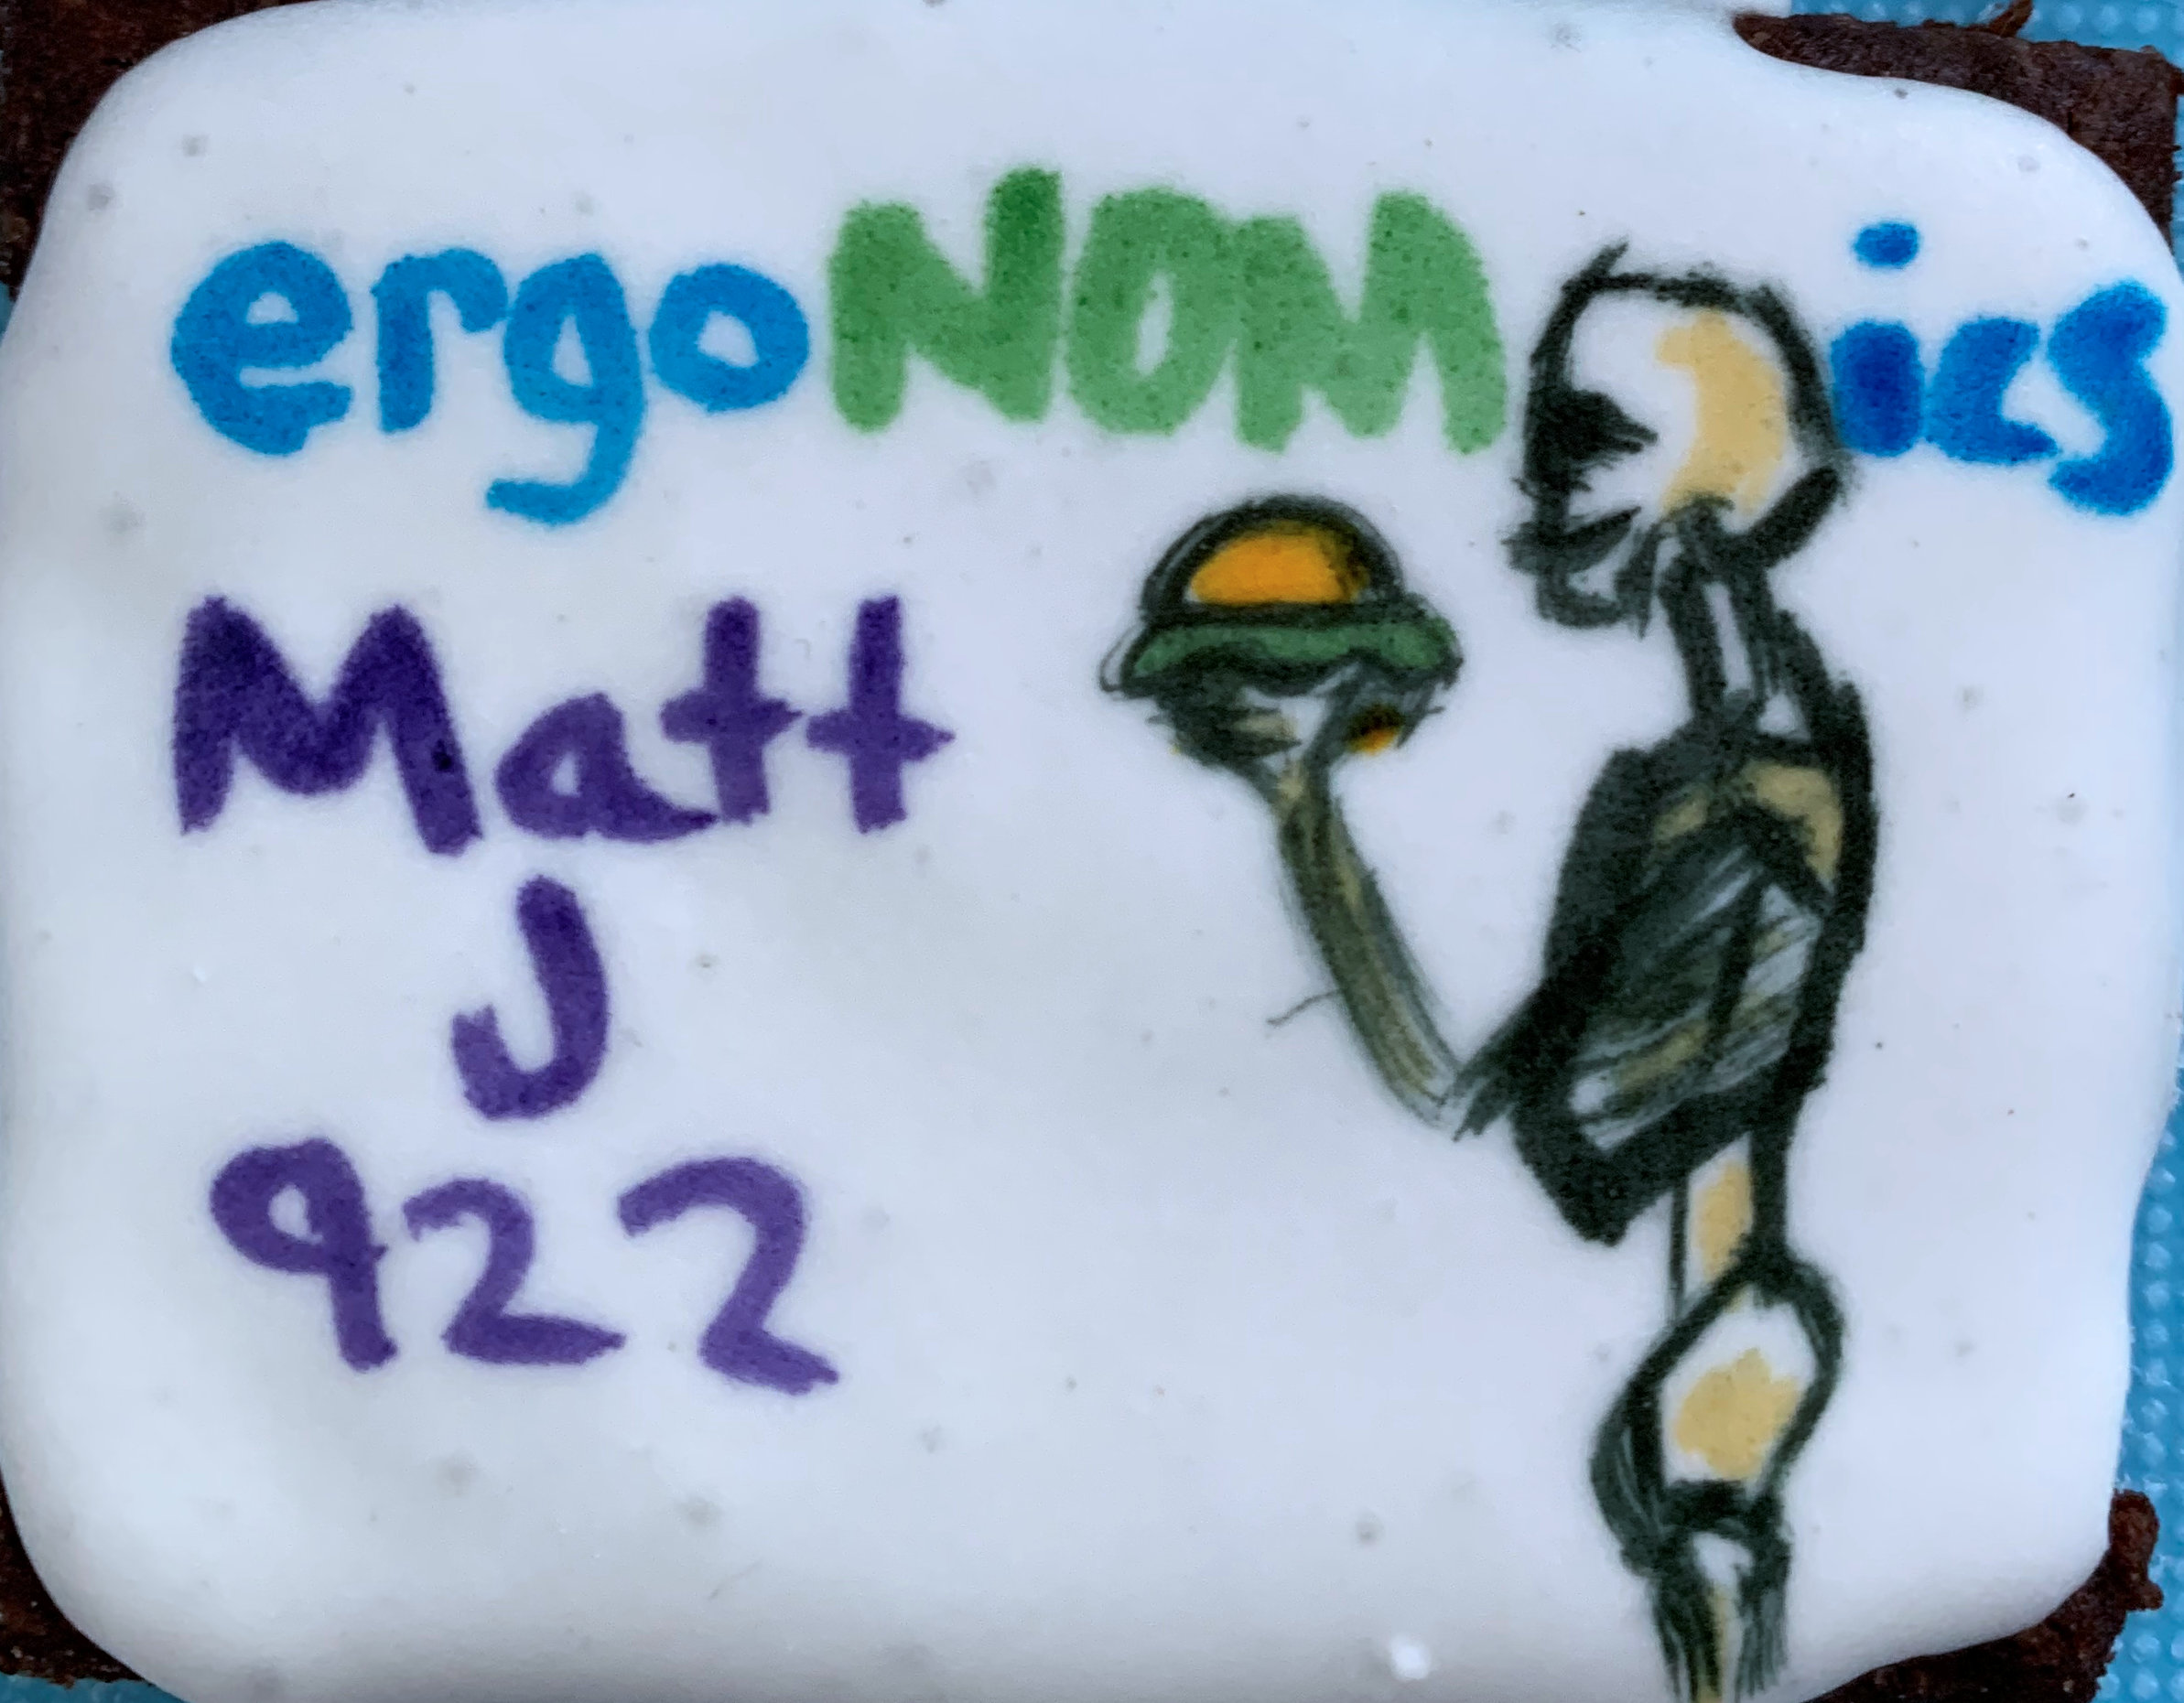 ergoNOMics
Matt
J
922